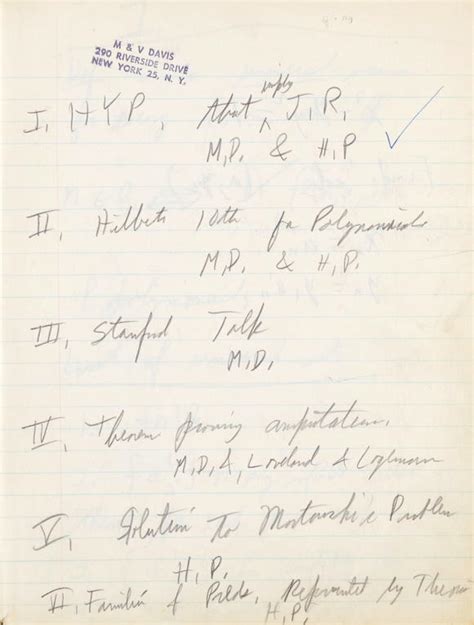 M & V DAVIS
290 RIVERSIDE DRIVE
NEW YORK 25, N. Y.
imply
I, HYP, that ^ J, R,
M, D, & H, P
II, Hilberts 10th for Polynomials
M, D, & H, P,
III, Stanford Talk
M, D,
IV, Theorem proving
M, D, &, Loveland & Logemann
V, Solution to Mostowski's Problem
H, P,
VI, Families of Preds, Represented by Theories
H, P,